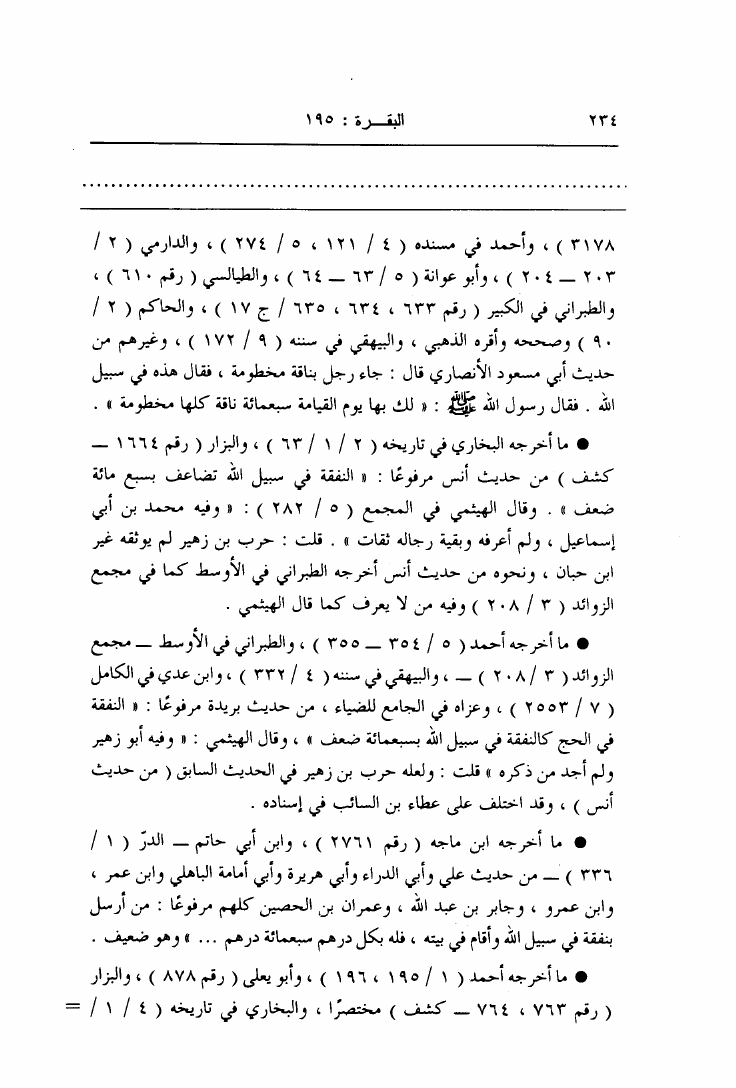 ٢٣٤ البقـــرة : ١٩٥
٣١٧٨ ) ، وأحمد في مسنده ( ٤ / ١٢١ ، ٥ / ٢٧٤ ) ، والدارمي ( ٢ /
٢٠٣ ــ ٢٠٤ ) ، وأبو عوانة ( ٥ / ٦٣ ــ ٦٤ ) ، والطيالسي ( رقم ٦١٠ ) ،
والطبراني في الكبير ( رقم ٦٣٣ ، ٦٣٤ ، ٦٣٥ / ج ١٧ ) ، والحاكم ( ٢ /
٩٠ ) وصححه وأقره الذهبي ، والبيهقي في سننه ( ٩ / ١٧٢ ) ، وغيرهم من
حديث أبي مسعود الأنصاري قال : جاء رجل بناقة مخطومة ، فقال هذه في سبيل
الله . فقال رسول الله ﷺ : « لك بها يوم القيامة سبعمائة ناقة كلها مخطومة » .
● ما أخرجه البخاري في تاريخه ( ٢ / ١ / ٦٣ ) ، والبزار ( رقم ١٦٦٤ ــ
كشف ) من حديث أنس مرفوعًا : « النفقة في سبيل الله تضاعف بسبع مائة
ضعف » . وقال الهيثمي في المجمع ( ٥ / ٢٨٢ ) : « وفيه محمد بن أبي
إسماعيل ، ولم أعرفه وبقية رجاله ثقات » . قلت : حرب بن زهير لم يوثقه غير
ابن حبان ، ونحوه من حديث أنس أخرجه الطبراني في الأوسط كما في مجمع
الزوائد ( ٣ / ٢٠٨ ) وفيه من لا يعرف كما قال الهيثمي .
● ما أخرجه أحمد ( ٥ / ٣٥٤ ــ ٣٥٥ ) ، والطبراني في الأوسط ــ مجمع
الزوائد ( ٣ / ٢٠٨ ) ــ ، والبيهقي في سننه ( ٤ / ٣٣٢ ) ، وابن عدي في الكامل
( ٧ / ٢٥٥٣ ) ، وعزاه في الجامع للضياء ، من حديث بريدة مرفوعًا : « النفقة
في الحج كالنفقة في سبيل الله بسبعمائة ضعف » ، وقال الهيثمي : « وفيه أبو زهير
ولم أجد من ذكره » قلت : ولعله حرب بن زهير في الحديث السابق ( من حديث
أنس ) ، وقد اختلف على عطاء بن السائب في إسناده .
● ما أخرجه ابن ماجه ( رقم ٢٧٦١ ) ، وابن أبي حاتم ــ الدرّ ( ١ /
٣٣٦ ) ــ من حديث علي وأبي الدراء وأبي هريرة وأبي أمامة الباهلي وابن عمر ،
وابن عمرو ، وجابر بن عبد الله ، وعمران بن الحصين كلهم مرفوعًا : من أرسل
بنفقة في سبيل الله وأقام في بيته ، فله بكل درهم سبعمائة درهم ... » وهو ضعيف .
● ما أخرجه أحمد ( ١ / ١٩٥ ، ١٩٦ ) ، وأبو يعلى ( رقم ٨٧٨ ) ، والبزار
( رقم ٧٦٣ ، ٧٦٤ ــ كشف ) مختصرًا ، والبخاري في تاريخه ( ٤ / ١ / =